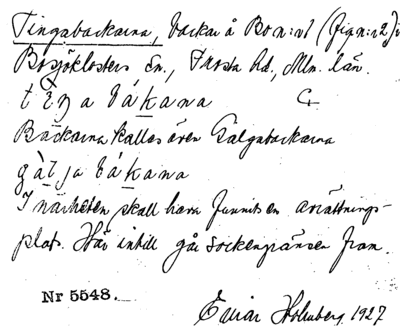 Tingabackarna, backar å Bo n:r 1 (fig n:r 2) i
Bosjöklosters sn., Frosta hd., Mlm. län.
tiŋa bákana
Backarna kallas även Galgabackarna
gàlja bákana
I närheten skall ha funnits en avrättnings-
plats. Här intill går sockengränsen fram.
Nr 5548.
Einar Holmberg 1927